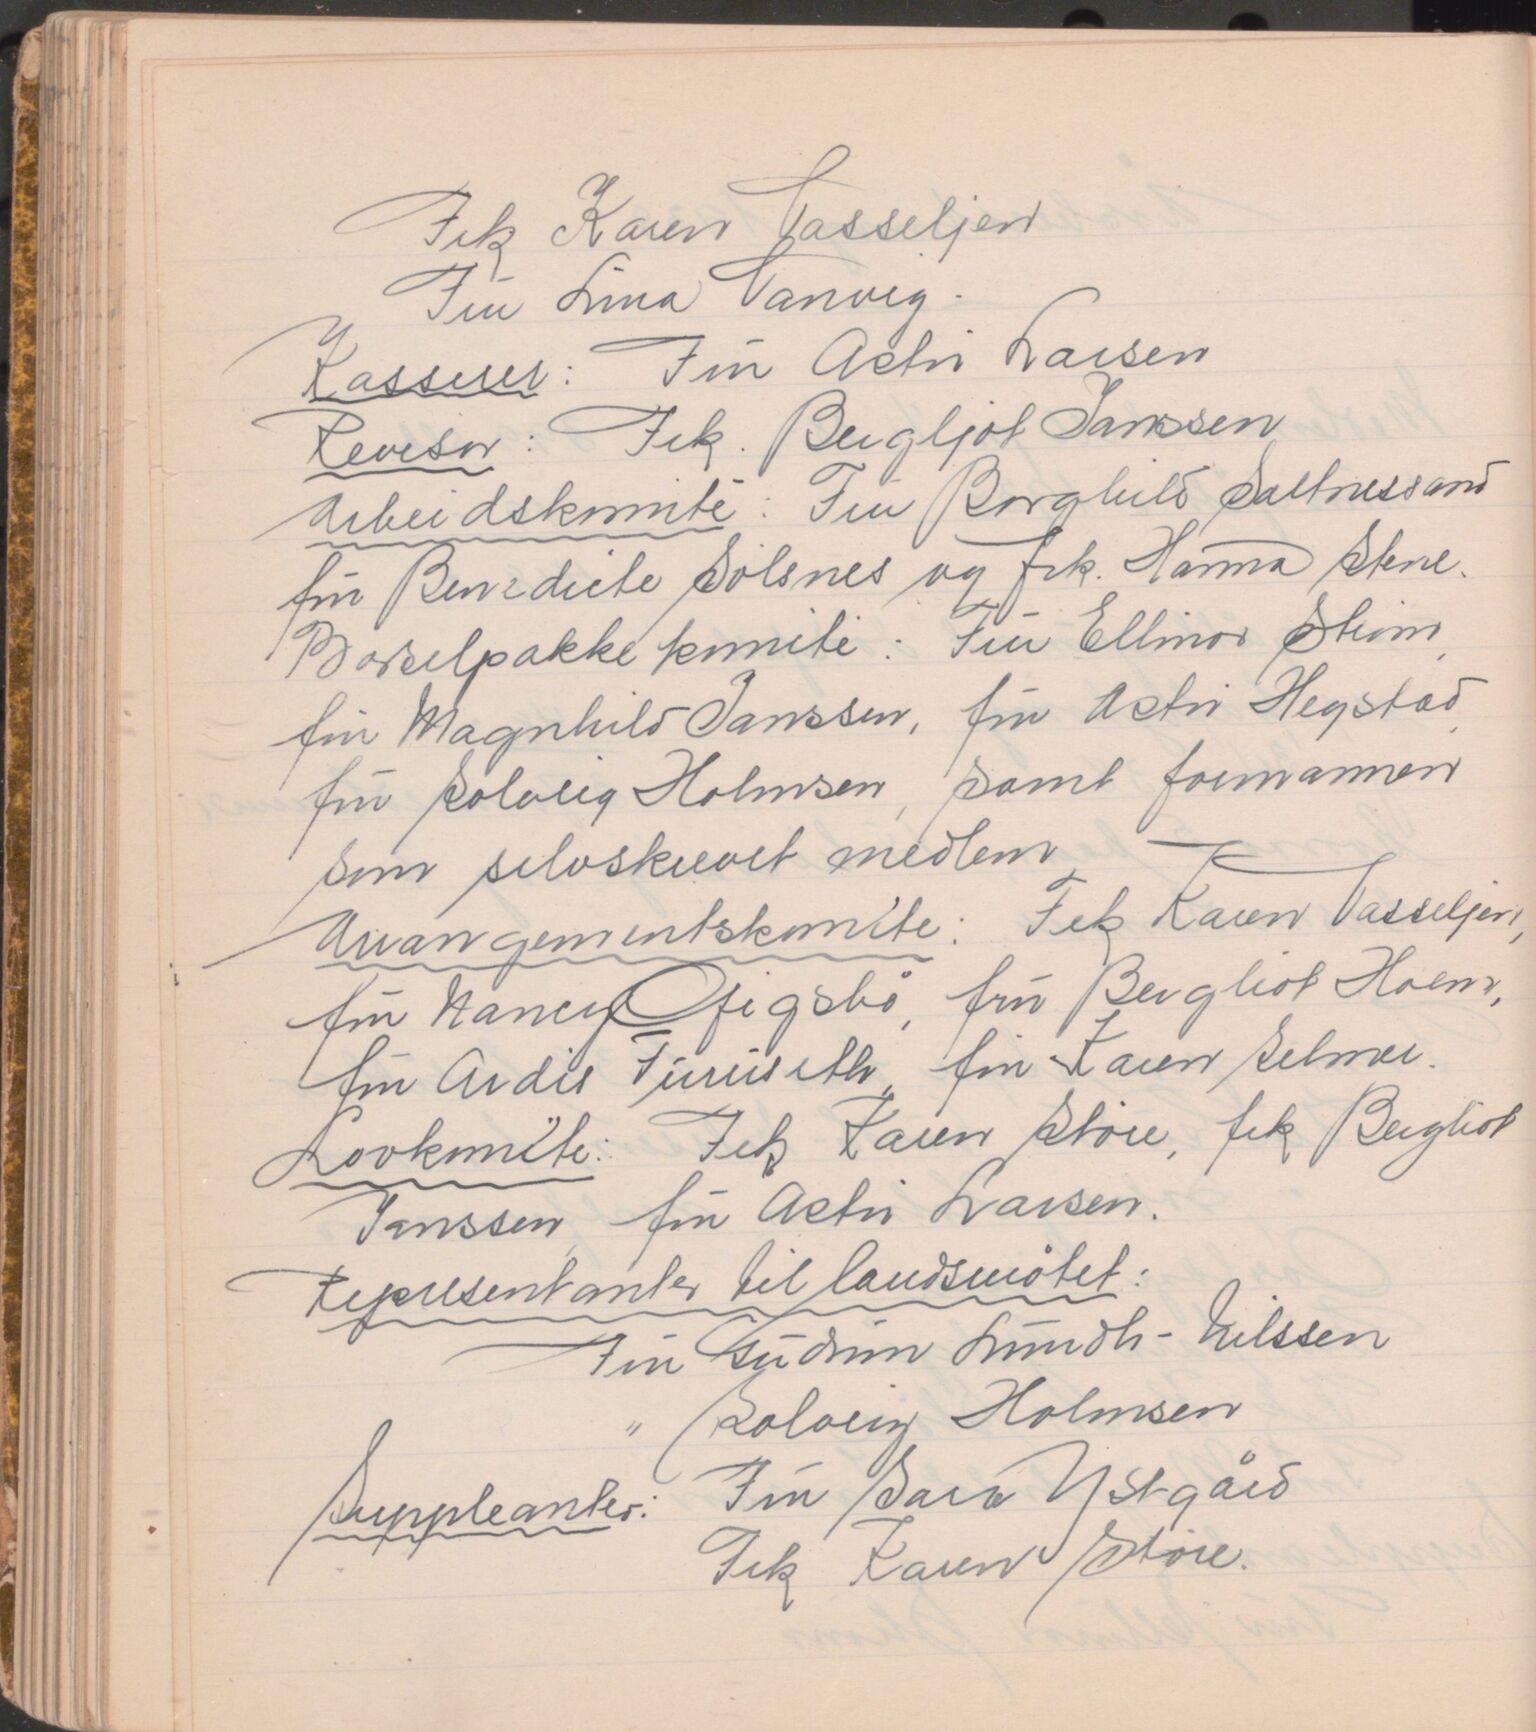 Frk Karen Vasseljen
Fru Lina Vanvig.
Kasserer: Fru Astri Larsen
Revisor: Frk. Bergljot Janssen
Arbeidskomite: Fru Borghild Saltnessand
fru Benedicte Solsnes og frk. Hanna Stene.
Barselpakkekomite: Fru Ellinor Strøm,
fru Magnhild Janssen, fru Astri Hegstad,
fru Solveig Holmsen, samt formannen
som selvskrevet medlem
Arrangementskomite: Frk Karen Vasseljen,
fru Nancy Ofigsbø, fru Bergliot Hoem,
fru Ardis Furuseth, fru Karen Selmer.
Lovkomite: Frk Karen Støre, frk Bergliot
Janssen, fru Astri Larsen.
Representanter til landsmøtet:
Fru Gudrun Lundh-Nilssen
" Solveig Holmsen
Suppleanter: Fru Sara Ystgård
Frk Karen Støre.